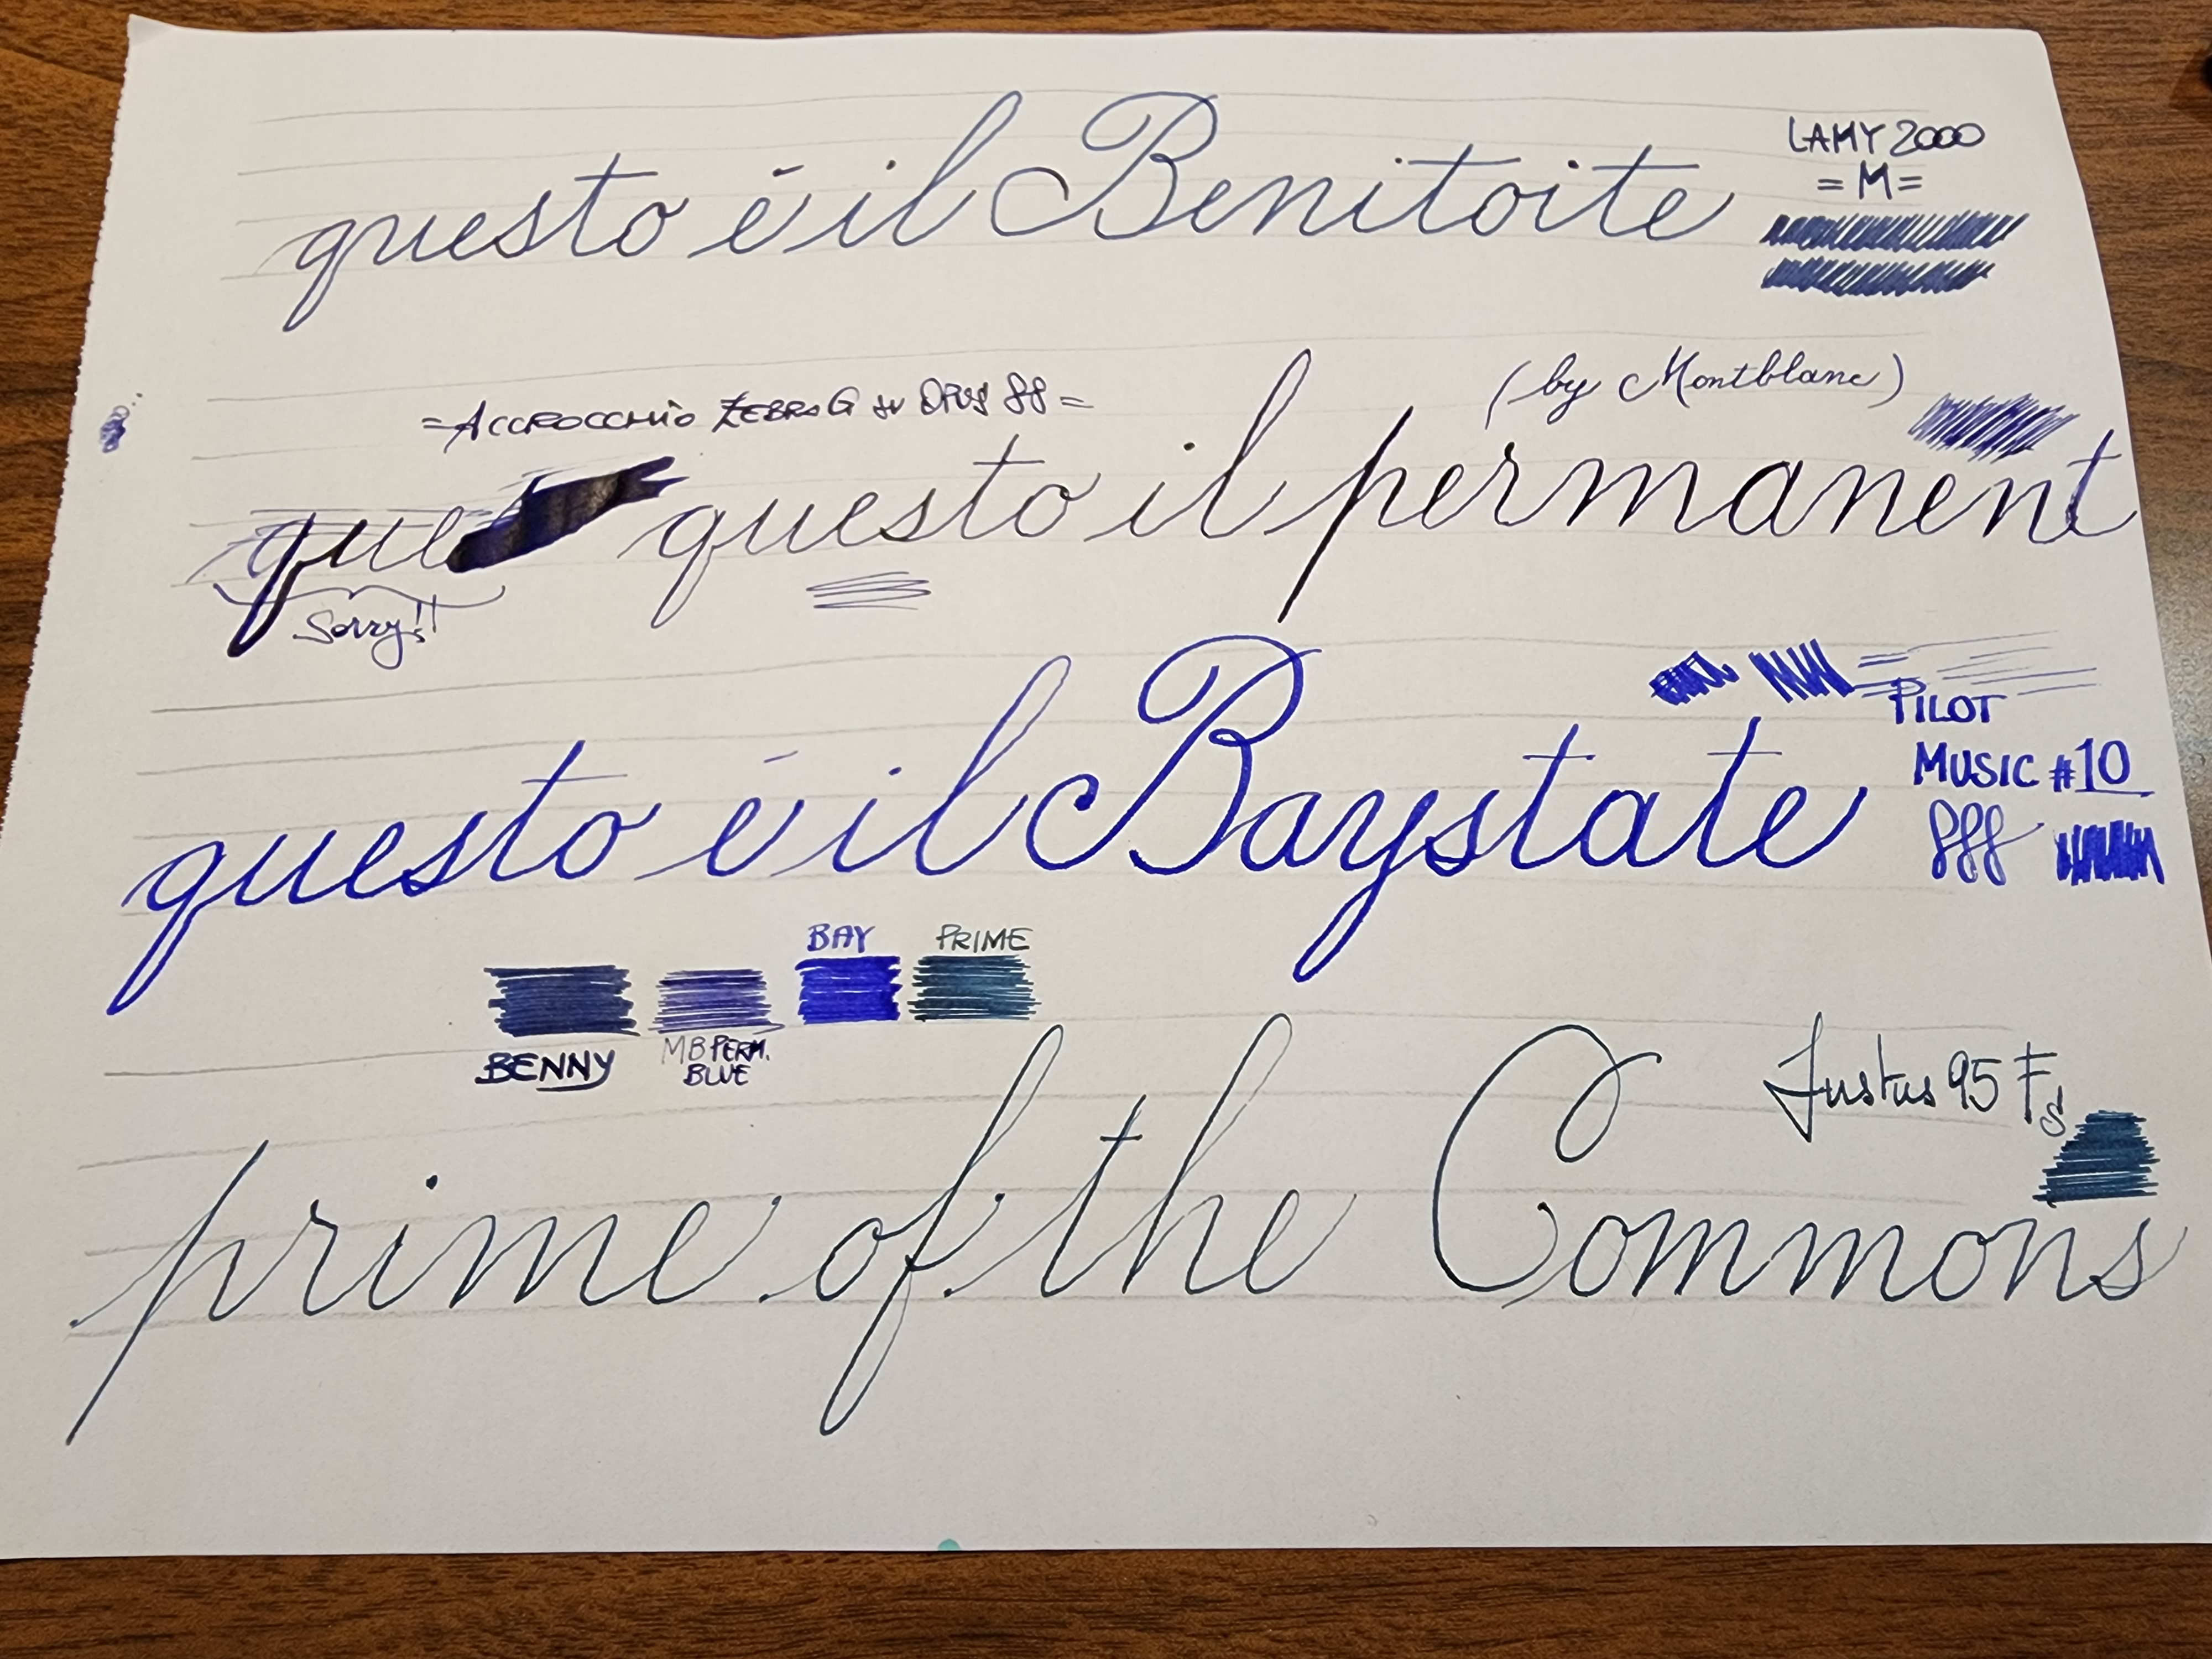 questo é il Benitoite
LAMY 2000
= M =
= ACCROCCHIO ZEBRA G SU OPUS 88 =
(by Montblanc)
que questo il permanent
Sorry!!
PILOT
MUSIC #10
questo é il Baystate
BAY PRIME
BENNY
MB PERM.
BLUE
Justus 95 Fs
prime of the Commons